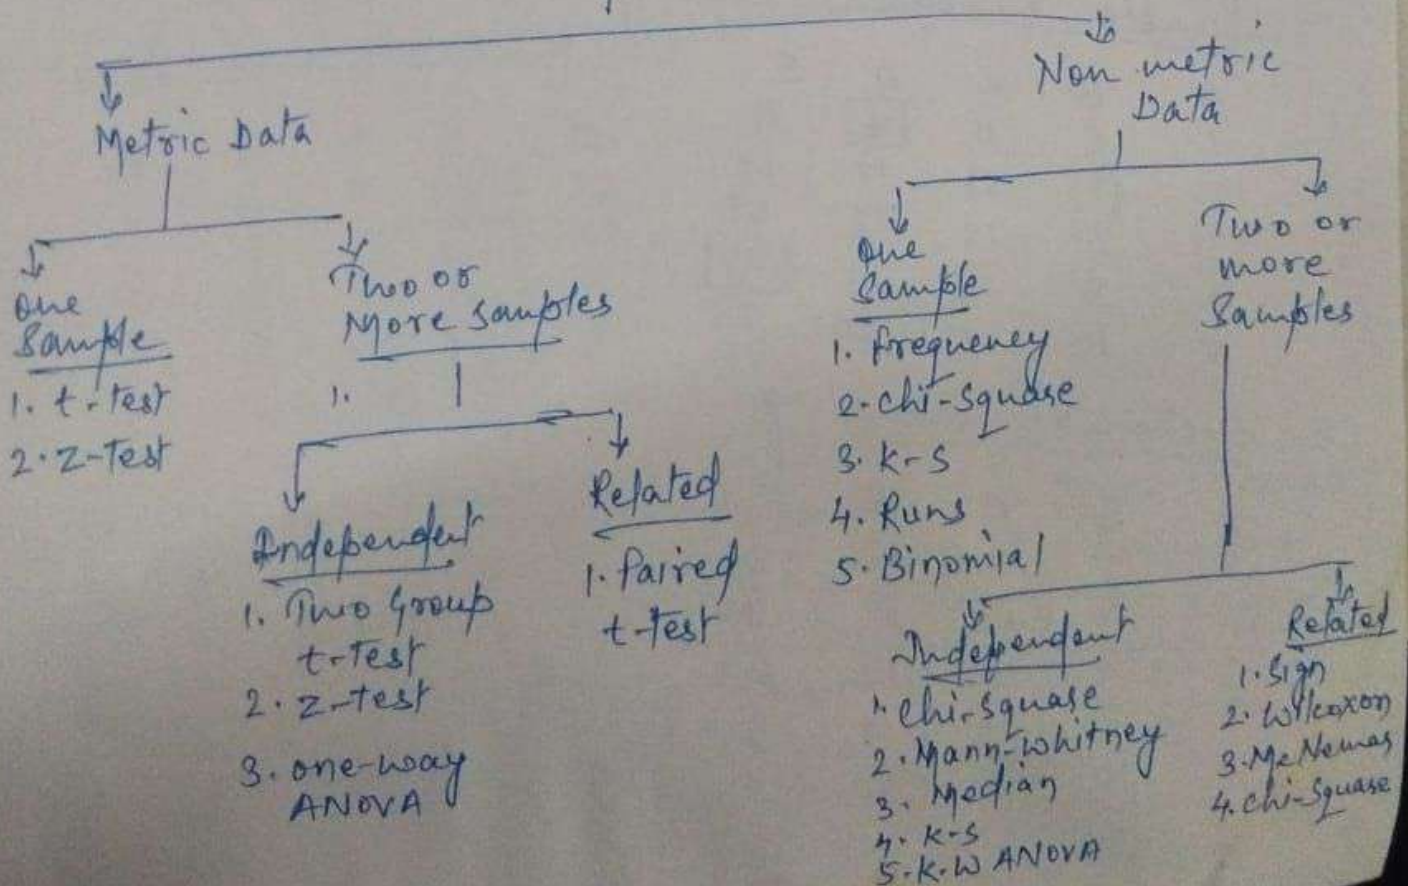 Metric Data
One
Sample
1. t-test
2. Z-Test
Two or
More Samples
1.
Independent
1. Two Group
t-Test
2. Z-test
3. one-way
ANOVA
Related
1. Paired
t-Test
Non metric
Data
One
Sample
1. frequency
2. Chi-Square
3. K-S
4. Runs
5. Binomial
Two or
more
Samples
Independent
1. Chi-Square
2. Mann-Whitney
3. Median
4. K-S
5. K.W ANOVA
Related
1. Sign
2. Wilcoxon
3. McNemar
4. Chi-Square